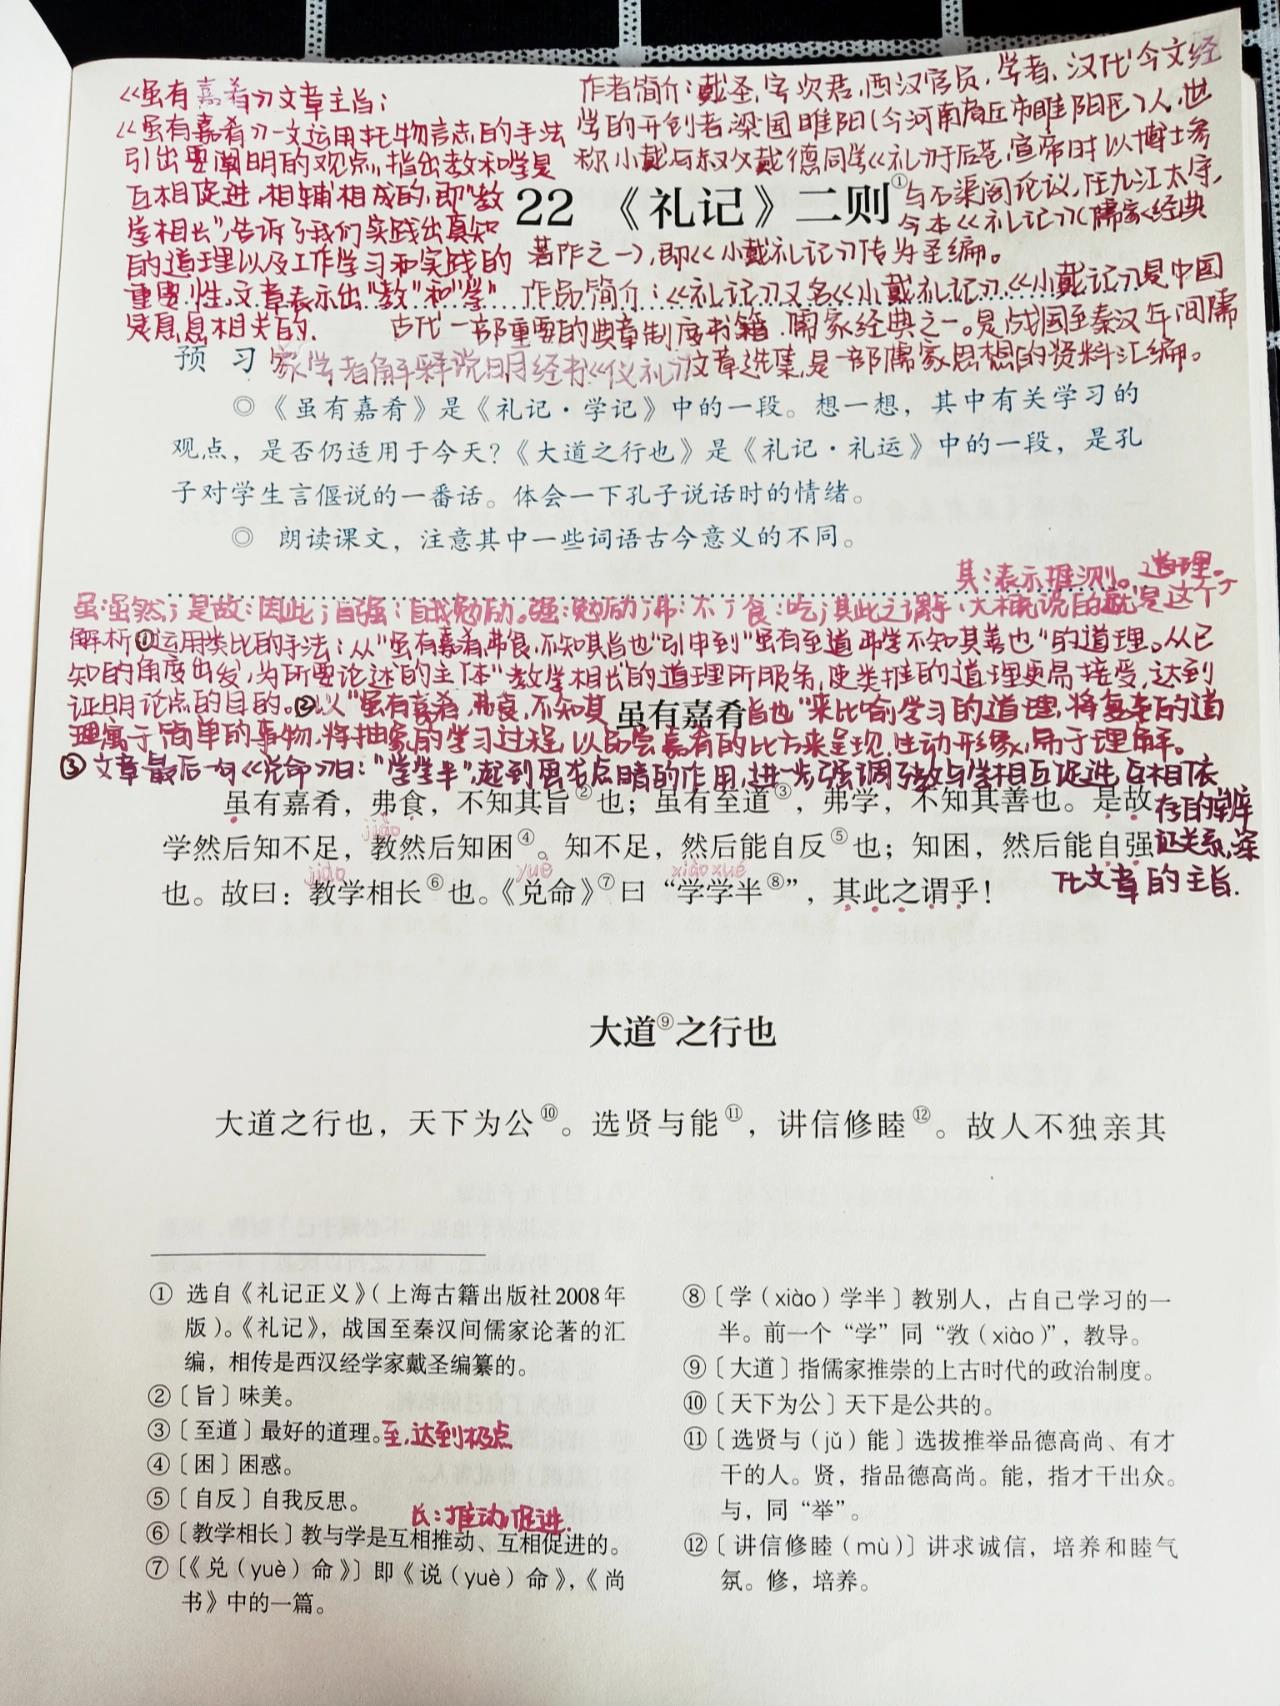 《虽有嘉肴》文章主旨：
《虽有嘉肴》一文运用托物言志的手法
引出要阐明的观点，指出教和学是
互相促进，相辅相成的，即“教
学相长”，告诉了我们实践出真知
的道理以及工作学习和实践的
重要性。文章表示出“教”和“学”
是息息相关的.
作者简介：戴圣，字次君，西汉官员，学者、汉代今文经
学的开创者梁国睢阳（今河南商丘市睢阳区）人，世
称小戴与叔父戴德同学《礼》于后苍，宣帝时以博士参
与石渠阁论议，任九江太守，
今本《礼记》（儒家经典
著作之一），即《小戴礼记》传为圣编。
作品简介：《礼记》又名《小戴礼记》《小戴记》是中国
古代一部重要的典章制度书籍，儒家经典之一。是战国至秦汉年间儒
家学者解释说明经书《仪礼》文章选集，是一部儒家思想的资料汇编。
22 《礼记》二则①
预 习
◎《虽有嘉肴》是《礼记·学记》中的一段。想一想，其中有关学习的
观点，是否仍适用于今天？《大道之行也》是《礼记·礼运》中的一段，是孔
子对学生言偃说的一番话。体会一下孔子说话时的情绪。
◎ 朗读课文，注意其中一些词语古今意义的不同。
其：表示推测。道理。
虽：虽然；是故：因此；自强：自我勉励。强：勉励；弗：不；食：吃；其此之谓乎：大概说的就是这个
解析①运用类比的手法：从“虽有嘉肴弗食，不知其旨也”引申到“虽有至道弗学不知其善也”的道理。从已
知的角度出发，为所要论述的主体“教学相长”的道理所服务，使类推的道理更易接受，达到
证明论点的目的。②以“虽有嘉肴，弗食，不知其旨也”来比喻学习的道理，将复杂的道
理寓于简单的事物，将抽象的学习过程，以品尝嘉肴的比方来呈现，生动形象，易于理解。
③文章最后一句《兑命》曰：“学学半”，起到画龙点睛的作用，进一步强调了教与学相互促进，互相依
存的辨
证关系，深
化文章的主旨.
虽有嘉肴
虽有嘉肴，弗食，不知其旨②也；虽有至道③，弗学，不知其善也。是故
jiào
学然后知不足，教然后知困④。知不足，然后能自反⑤也；知困，然后能自强
jiào yuè xiào xué
也。故曰：教学相长⑥也。《兑命》⑦曰“学学半⑧”，其此之谓乎！
大道⑨之行也
大道之行也，天下为公⑩。选贤与能⑪，讲信修睦⑫。故人不独亲其
① 选自《礼记正义》（上海古籍出版社2008年
版）。《礼记》，战国至秦汉间儒家论著的汇
编，相传是西汉经学家戴圣编纂的。
②〔旨〕味美。
③〔至道〕最好的道理。至，达到极点
④〔困〕困惑。
⑤〔自反〕自我反思。
长：推动，促进.
⑥〔教学相长〕教与学是互相推动、互相促进的。
⑦〔《兑（yuè）命》〕即《说（yuè）命》，《尚
书》中的一篇。
⑧〔学（xiào）学半〕教别人，占自己学习的一
半。前一个“学”同“敩（xiào）”，教导。
⑨〔大道〕指儒家推崇的上古时代的政治制度。
⑩〔天下为公〕天下是公共的。
⑪〔选贤与（jǔ）能〕选拔推举品德高尚、有才
干的人。贤，指品德高尚。能，指才干出众。
与，同“举”。
⑫〔讲信修睦（mù）〕讲求诚信，培养和睦气
氛。修，培养。